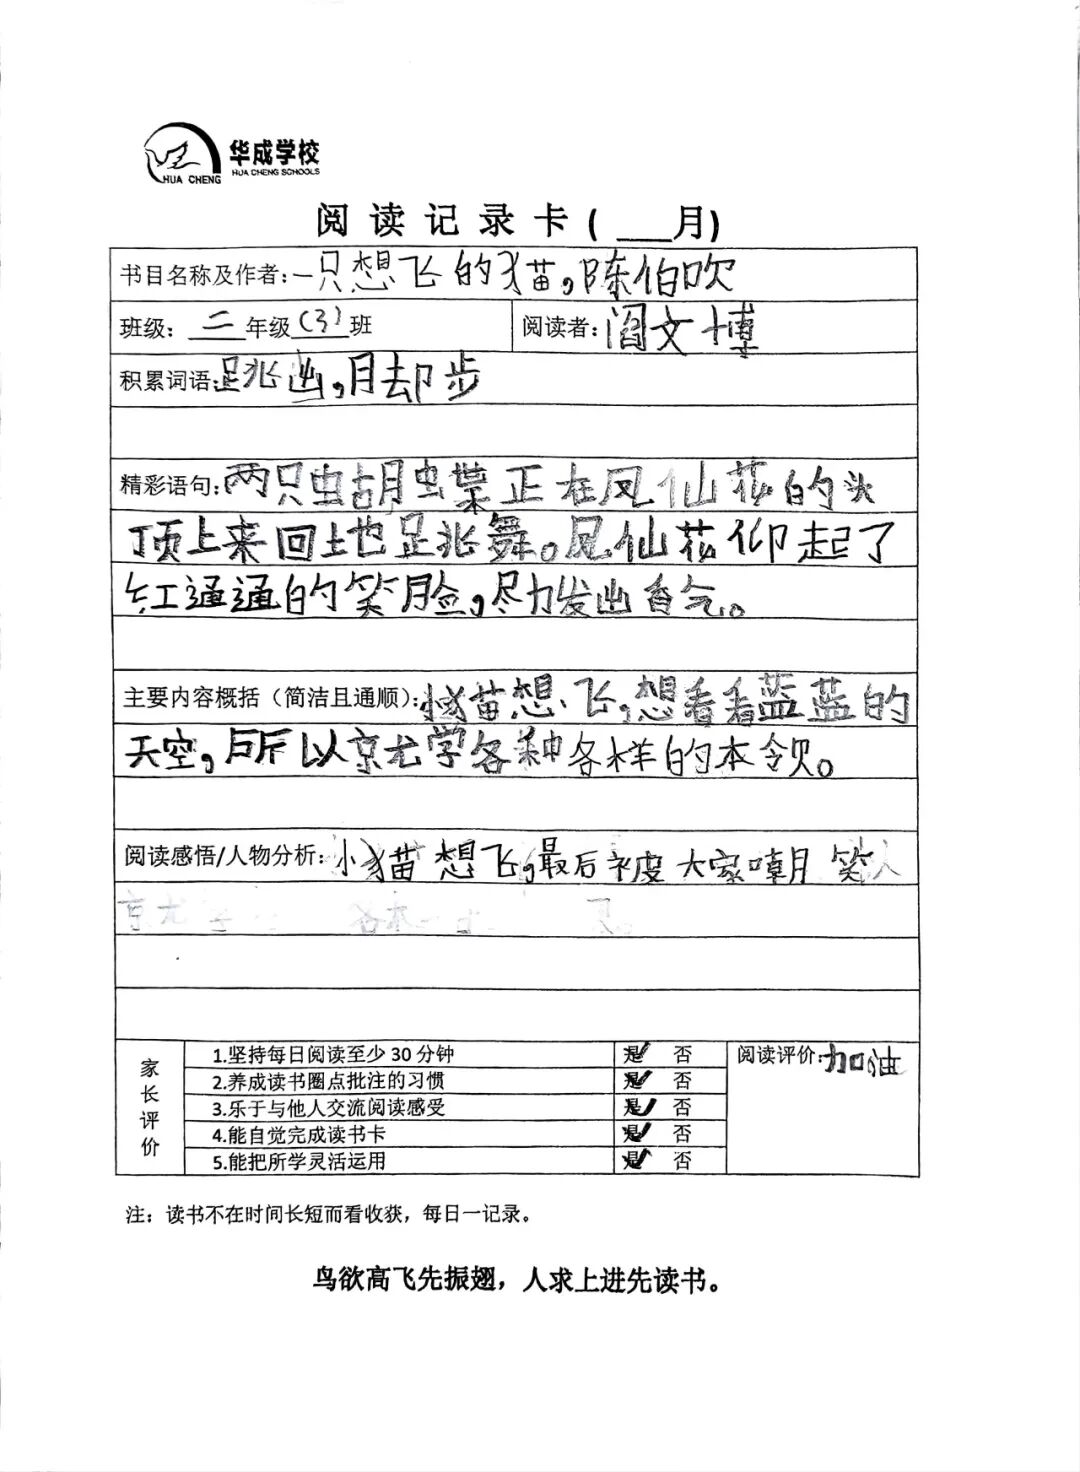 华成学校
HUA CHENG SCHOOLS
HUA CHENG
阅读记录卡( ___月)
书目名称及作者:一只想飞的猫,陈伯吹
班级: 二 年级 (3) 班 阅读者:阎文博
积累词语:跳出,脚步
精彩语句:两只蝴蝶正在凤仙花的头
顶上来回地跳舞。凤仙花仰起了
红通通的笑脸,尽力发出香气。
主要内容概括(简洁且通顺):小猫想飞,想看看蓝蓝的
天空,所以就学各种各样的本领。
阅读感悟/人物分析:小猫想飞,最后被大家嘲笑
就
家长评价
1.坚持每日阅读至少30分钟 是 否
2.养成读书圈点批注的习惯 是 否
3.乐于与他人交流阅读感受 是 否
4.能自觉完成读书卡 是 否
5.能把所学灵活运用 是 否
阅读评价:加油
注:读书不在时间长短而看收获,每日一记录。
鸟欲高飞先振翅,人求上进先读书。